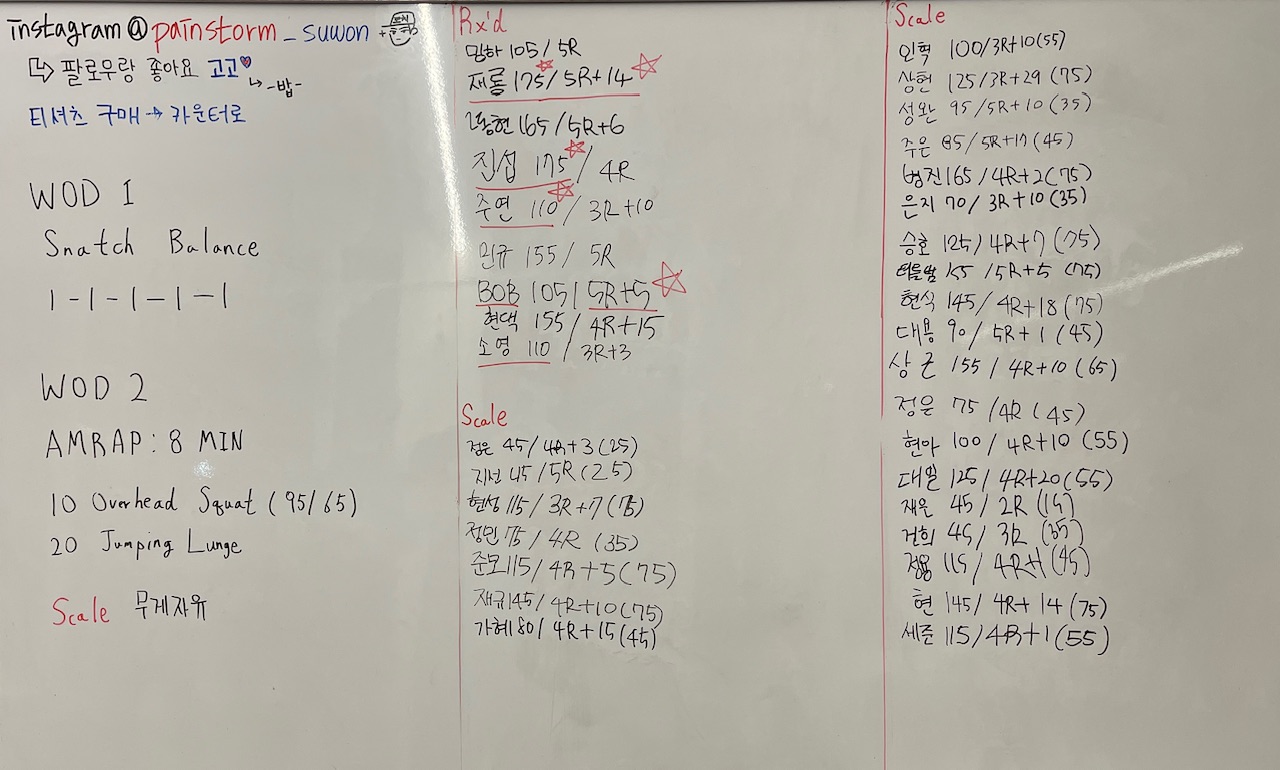 instagram@painstorm_suwon
↳ 팔로우랑 좋아요 고고♥
↳ -밥-
티셔츠 구매→카운터로
WOD 1
Snatch Balance
1-1-1-1-1
WOD 2
AMRAP: 8 MIN
10 Overhead Squat (95/65)
20 Jumping Lunge
Scale 무게자유
Rx'd
105/5R
재롬 175/5R+14
동현 165/5R+6
진섭 175/4R
주연 110/3R+10
민규 155/5R
BOB 105/5R+5
현택 155/4R+15
소영 110/3R+3
Scale
정은 45/4R+3(25)
지선 45/5R(25)
현성 115/3R+7(75)
정민 75/4R (35)
준모 115/4R+5(75)
재규 145/4R+10(75)
가혜 80/4R+15(45)
Scale
인혁 100/3R+10(55)
상헌 125/3R+29(75)
성완 95/5R+10(35)
주은 85/5R+17(45)
병진 165/4R+2(75)
은지 70/3R+10(35)
승호 125/4R+7(75)
/5R+5 (75)
현식 145/4R+18(75)
대용 90/5R+1(45)
상근 155/4R+10(65)
정은 75/4R(45)
현아 100/4R+10(55)
대일 125/4R+20(55)
재은 45/2R
건희 45/3R (35)
정용 115/4R+1(45)
현 145/4R+14(75)
세준 115/4R+1(55)